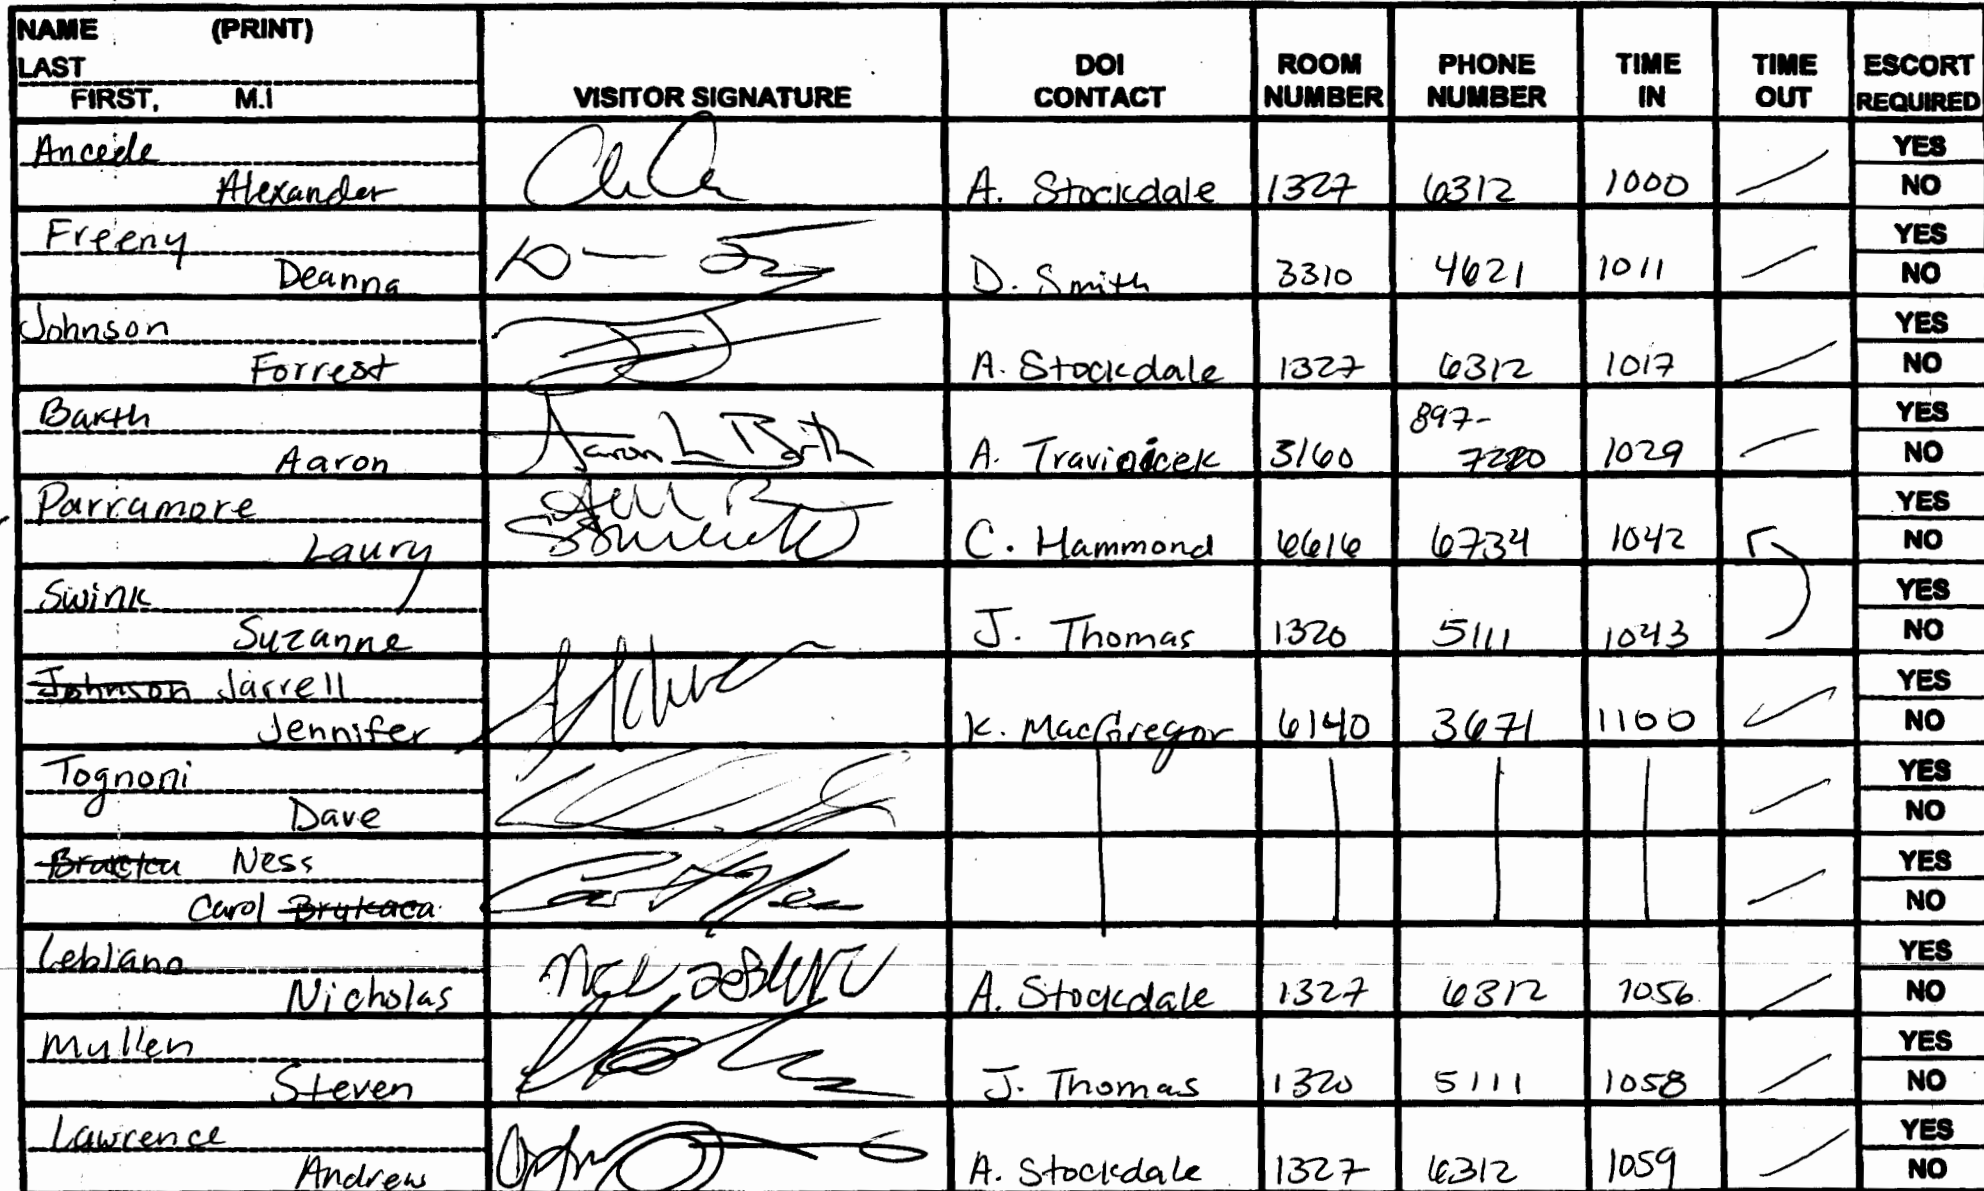 NAME (PRINT)
LAST
FIRST, M.I
VISITOR SIGNATURE
DOI CONTACT
ROOM NUMBER
PHONE NUMBER
TIME IN
TIME OUT
ESCORT REQUIRED
Alexander A. Stockdale 1327 6312 1000 YES NO
Freeny
Deanna D. Smith 3310 4621 1011 YES NO
Johnson
Forrest A. Stockdale 1327 6312 1017 YES NO
Barth 897-
Aaron Aaron L Barth A. 3160 1029 YES NO
Parramore
Laury C. Hammond 6616 6734 1042 YES NO
Swink
Suzanne J. Thomas 1320 5111 1043 YES NO
Johnson Jarrell
Jennifer K. MacGregor 6140 3671 1100 YES NO
Tognoni
Dave YES NO
Ness
Carol YES NO
Nicholas A. Stockdale 1327 6312 1056 YES NO
Mullen
Steven J. Thomas 1320 5111 1058 YES NO
Lawrence
Andrew A. Stockdale 1327 6312 1059 YES NO